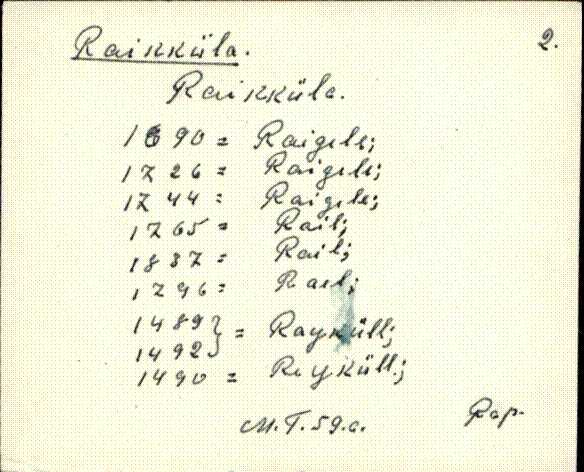 Raikküla. 2.
Raikküla.
1690 = Raigele;
1726 = Raigele;
1744 = Raigele;
1765 = Rail;
1837 = Rail;
1796 = Rael;
1489} = Rayküll;
1492}
1490 = Reyküll;
M.T.59.a.
Rap.